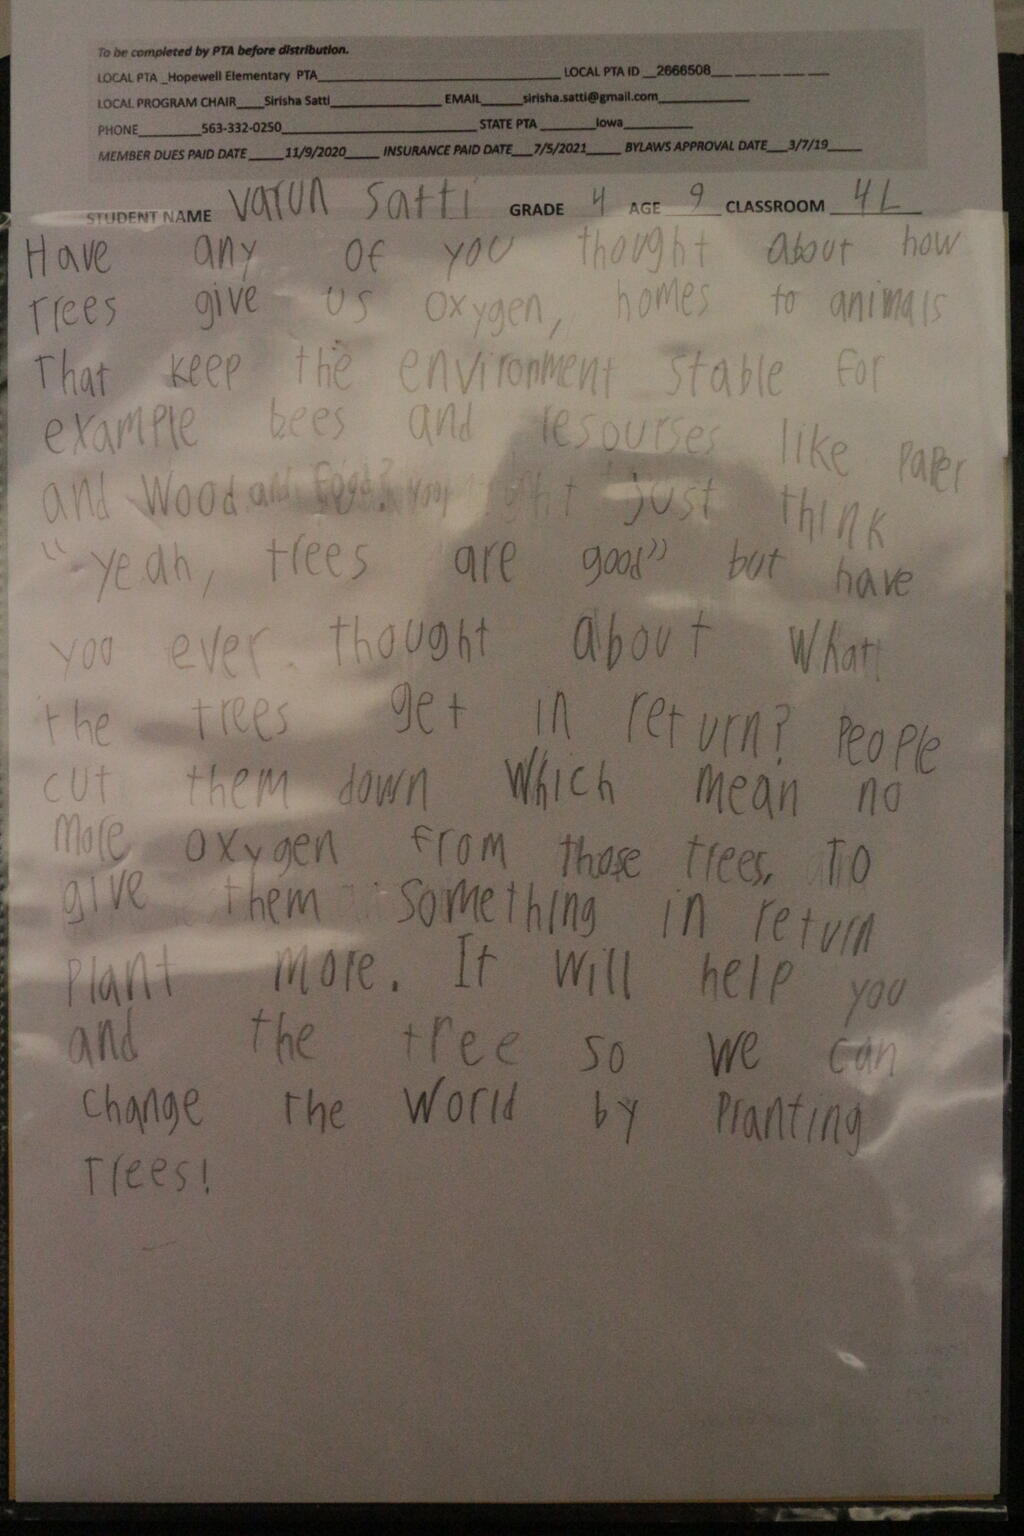 To be completed by PTA before distribution.
LOCAL PTA _Hopewell Elementary PTA____ LOCAL PTA ID __2666508__ __ __ __ __
LOCAL PROGRAM CHAIR____Sirisha Satti____ EMAIL____sirisha.satti@gmail.com____
PHONE____563-332-0250____ STATE PTA ____Iowa____
MEMBER DUES PAID DATE ____11/9/2020____ INSURANCE PAID DATE__7/5/2021____ BYLAWS APPROVAL DATE__3/7/19____
STUDENT NAME Varun Satti GRADE 4 AGE 9 CLASSROOM 4L
Have any of you thought about how
Trees give us oxygen, homes to animals
That keep the environment stable for
example bees and resourses like paper
and Wood and Food? You might just think
"yeah, trees are good" but have
you ever thought about What
the trees get in return? People
cut them down Which mean no
More oxygen from those trees. To
give them something in return
Plant more. It will help you
and the tree so we can
change the world by Planting
Trees!